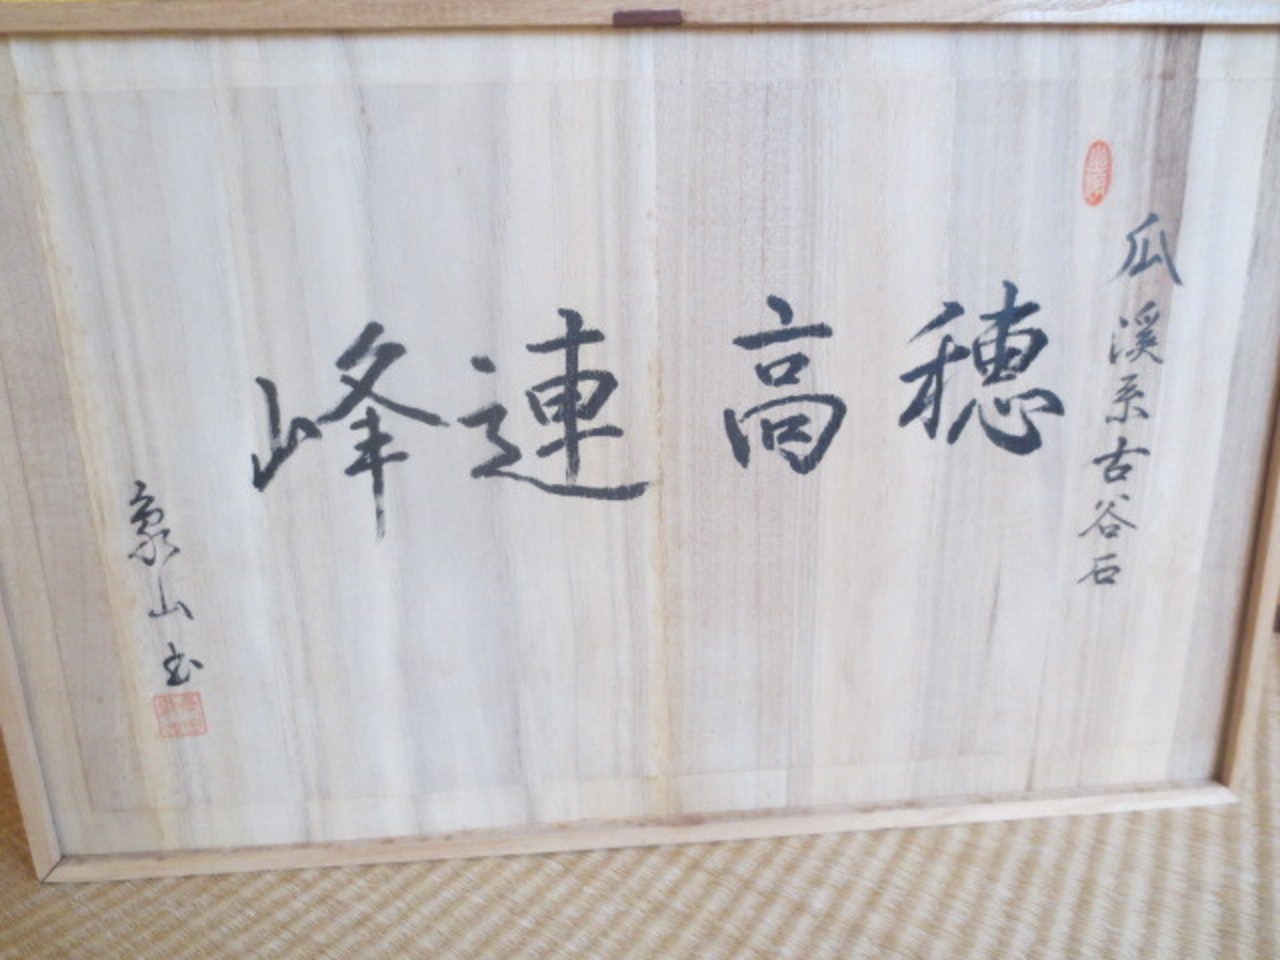 瓜溪系古谷石
穂高連峰
象山書